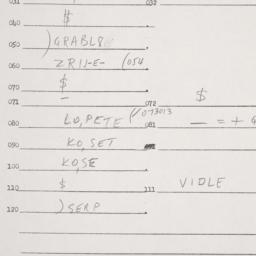 031 032
040 $
050 )GRABL8
060 ZRIJ-E- (054
070 $
071 - 072 $
080 LO,PETE (//073013 081 - = + G
090 KO,SET
100 KO,SE
110 $ 111 VIDLE
120 )SERP